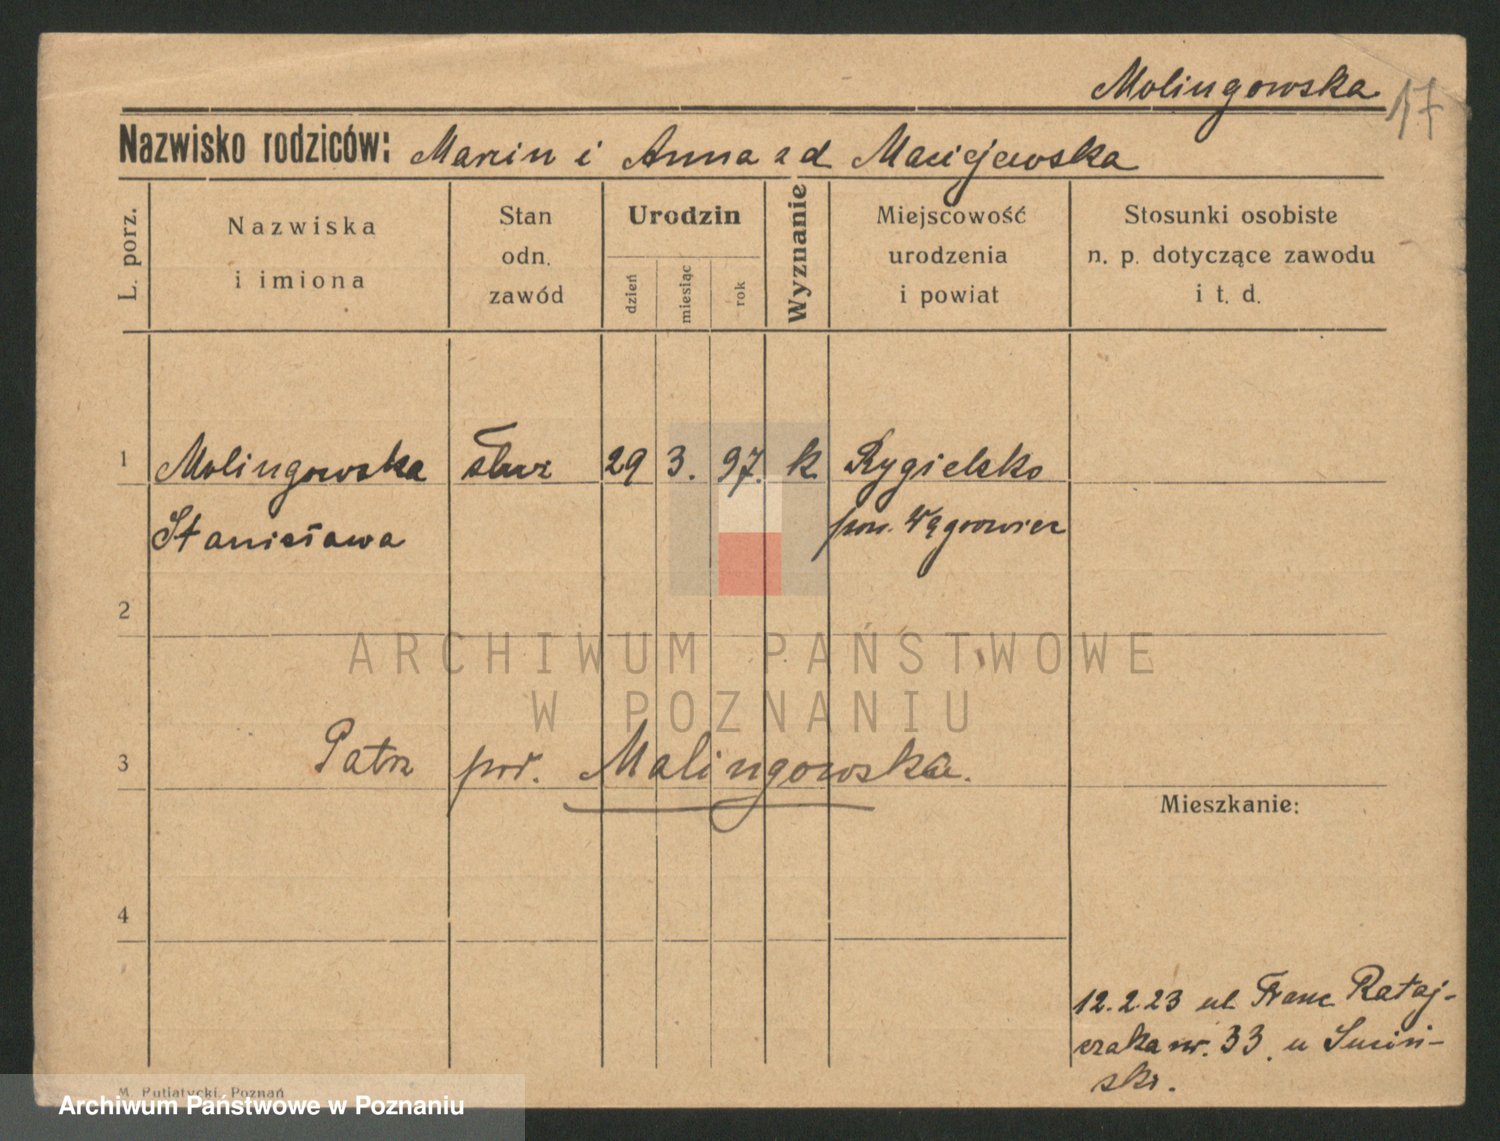 Molingowska
17
Nazwisko rodziców: Marcin i Anna zd Maciejewska
L. porz.
Nazwiska
i imiona
Stan
odn.
zawód
Urodzin
dzień
miesiąc
rok
Wyznanie
Miejscowość
urodzenia
i powiat
Stosunki osobiste
n. p. dotyczące zawodu
i t. d.
1 Molingowska służ 29 3. 97. k Rygielsko
Stanisława pow. Wągrowiec
2
ARCHIWUM PAŃSTWOWE
W POZNANIU
3 Patrz pod. Malingowska.
Mieszkanie:
4
12.2.23 ul Franc Rataj-
czaka nr. 33. u
M. Putiatycki, Poznań
Archiwum Państwowe w Poznaniu